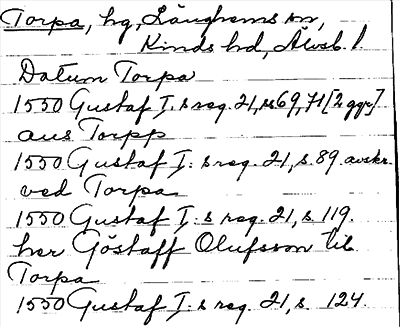 Torpa, hg, Länghems sn,
Kinds hd, Älvsb. l.
Datum Torpa
1550 Gustaf I:s reg. 21, ss 69, 71 [2 ggr]
aus Torpp
1550 Gustaf I:s reg. 21, s. 89. avskr.
ved Torpa
1550 Gustaf I:s reg. 21, s. 119.
her Göstaff Olufsson til
Torpa
1550 Gustaf I:s reg. 21, s. 124.